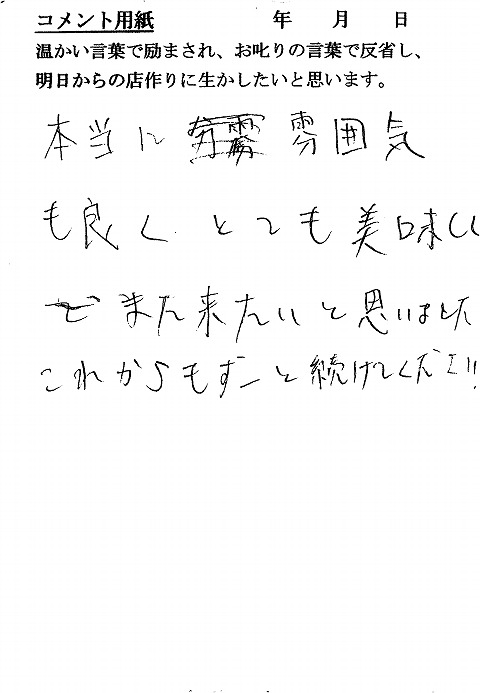 コメント用紙 年 月 日
温かい言葉で励まされ、お叱りの言葉で反省し、
明日からの店作りに生かしたいと思います。
本当に 雰囲気
も良く とても美味しい
また来たいと思いました
これからもずーと続けてください!!